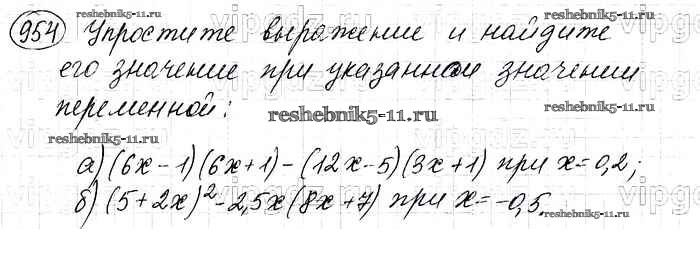 reshebnik5-11.ru
reshebnik5-11.ru
954 Упростите выражение и найдите
его значение при указанном значении
переменной:
reshebnik5-11.ru
reshebnik5-11.ru
reshebnik5-11.ru
reshebnik5-11.ru
а) (6x-1)(6x+1)-(12x-5)(3x+1) при x=0,2;
б) (5+2x)²-2,5x(8x+7) при x=-0,5.
reshebnik5-11.ru
reshebnik5-11.ru